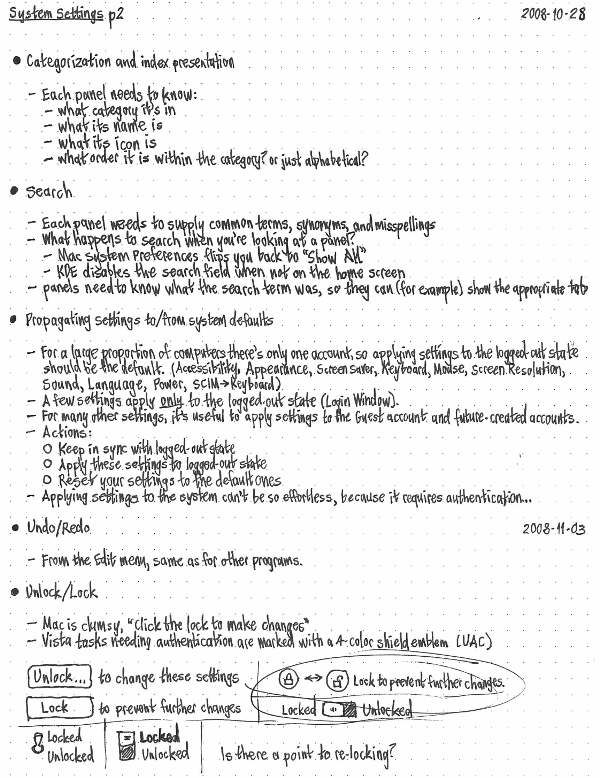 System Settings p2 2008-10-28
• Categorization and index presentation
– Each panel needs to know:
– what category it's in
– what its name is
– what its icon is
– what order it is within the category? or just alphabetical?
• Search
– Each panel needs to supply common terms, synonyms, and misspellings
– What happens to search when you're looking at a panel?
– Mac System Preferences flips you back to "Show All"
– KDE disables the search field when not on the home screen
– panels need to know what the search term was, so they can (for example) show the appropriate tab
• Propagating settings to/from system defaults
– For a large proportion of computers there's only one account, so applying settings to the logged-out state
should be the default. (Accessibility, Appearance, Screen Saver, Keyboard, Mouse, Screen Resolution,
Sound, Language, Power, SCIM→Keyboard)
– A few settings apply only to the logged-out state (Login Window).
– For many other settings, it's useful to apply settings to the Guest account and future-created accounts.
– Actions:
O Keep in sync with logged-out state
O Apply these settings to logged-out state
O Reset your settings to the default ones
– Applying settings to the system can't be so effortless, because it requires authentication...
• Undo/Redo 2008-11-03
– From the Edit menu, same as for other programs.
• Unlock/Lock
– Mac is clumsy, "Click the lock to make changes"
– Vista tasks needing authentication are marked with a 4-color shield emblem (UAC)
Unlock... to change these settings
Lock to prevent further changes
↔ Lock to prevent further changes.
Locked Unlocked
Locked
Unlocked
Locked
Unlocked
Is there a point to re-locking?